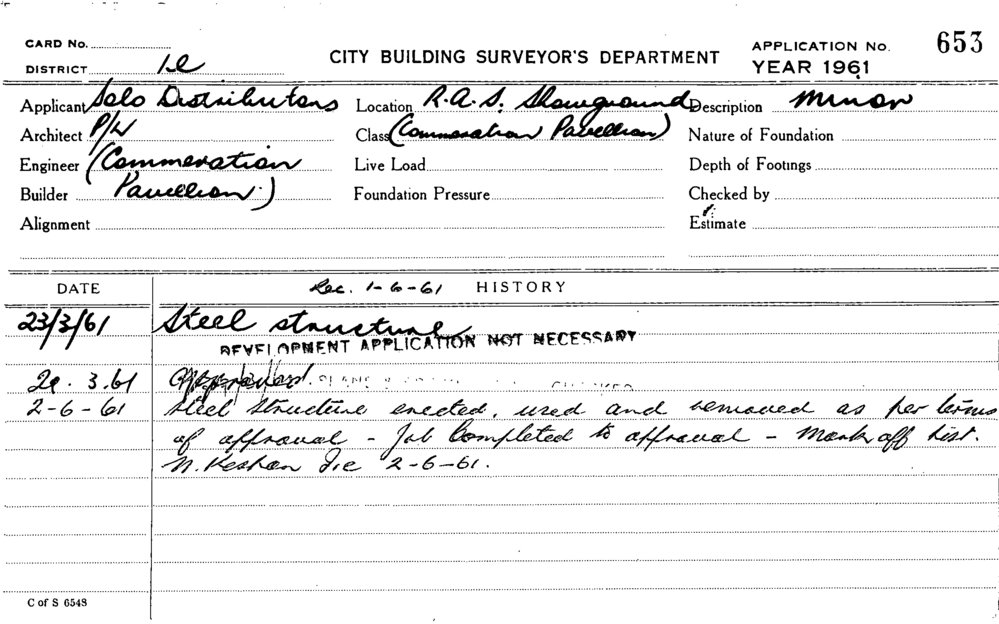 CARD No.
DISTRICT 1c
CITY BUILDING SURVEYOR'S DEPARTMENT
APPLICATION No. 653
YEAR 1961
Applicant Solo Distributors Location R.A.S. Showground Description Minor
Architect P/L Class (Commeration Pavellion) Nature of Foundation
Engineer (Commeration Live Load Depth of Footings
Builder Pavellion.) Foundation Pressure Checked by
Alignment Estimate
DATE Rec. 1-6-61 HISTORY
23/3/61 Steel structure
DEVELOPMENT APPLICATION NOT NECESSARY
29.3.61 Approved. PLANS CHECKED
2-6-61 Steel Structure erected, used and removed as per terms
of approval - Job Completed to approval - Mark off List.
2-6-61.
C of S 6548